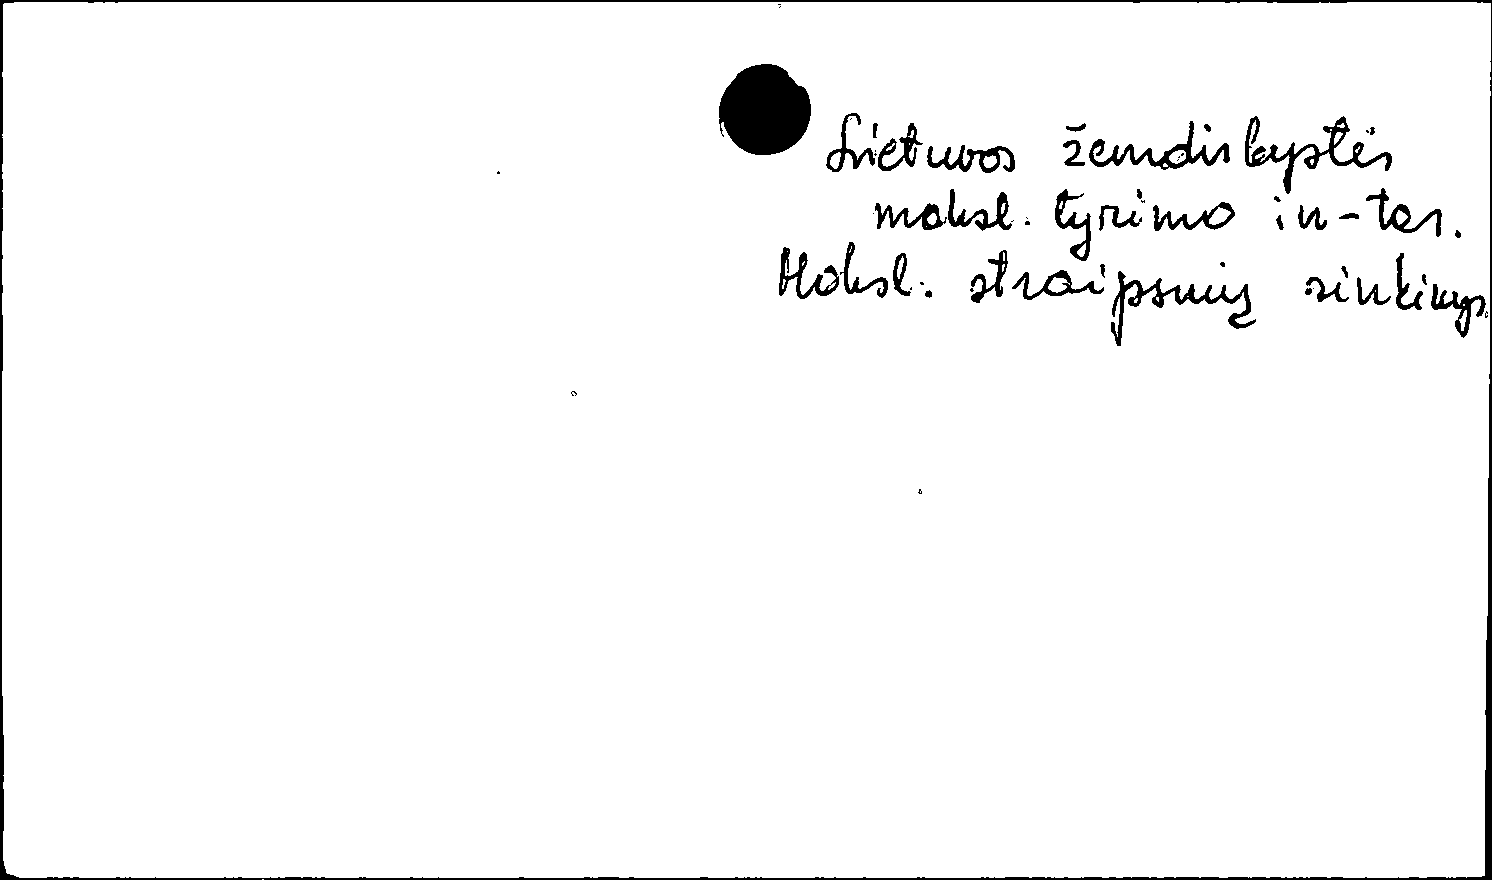 Lietuvos žemdirbystės
moksl. tyrimo in-tas.
Moksl. straipsnių rinkinys.